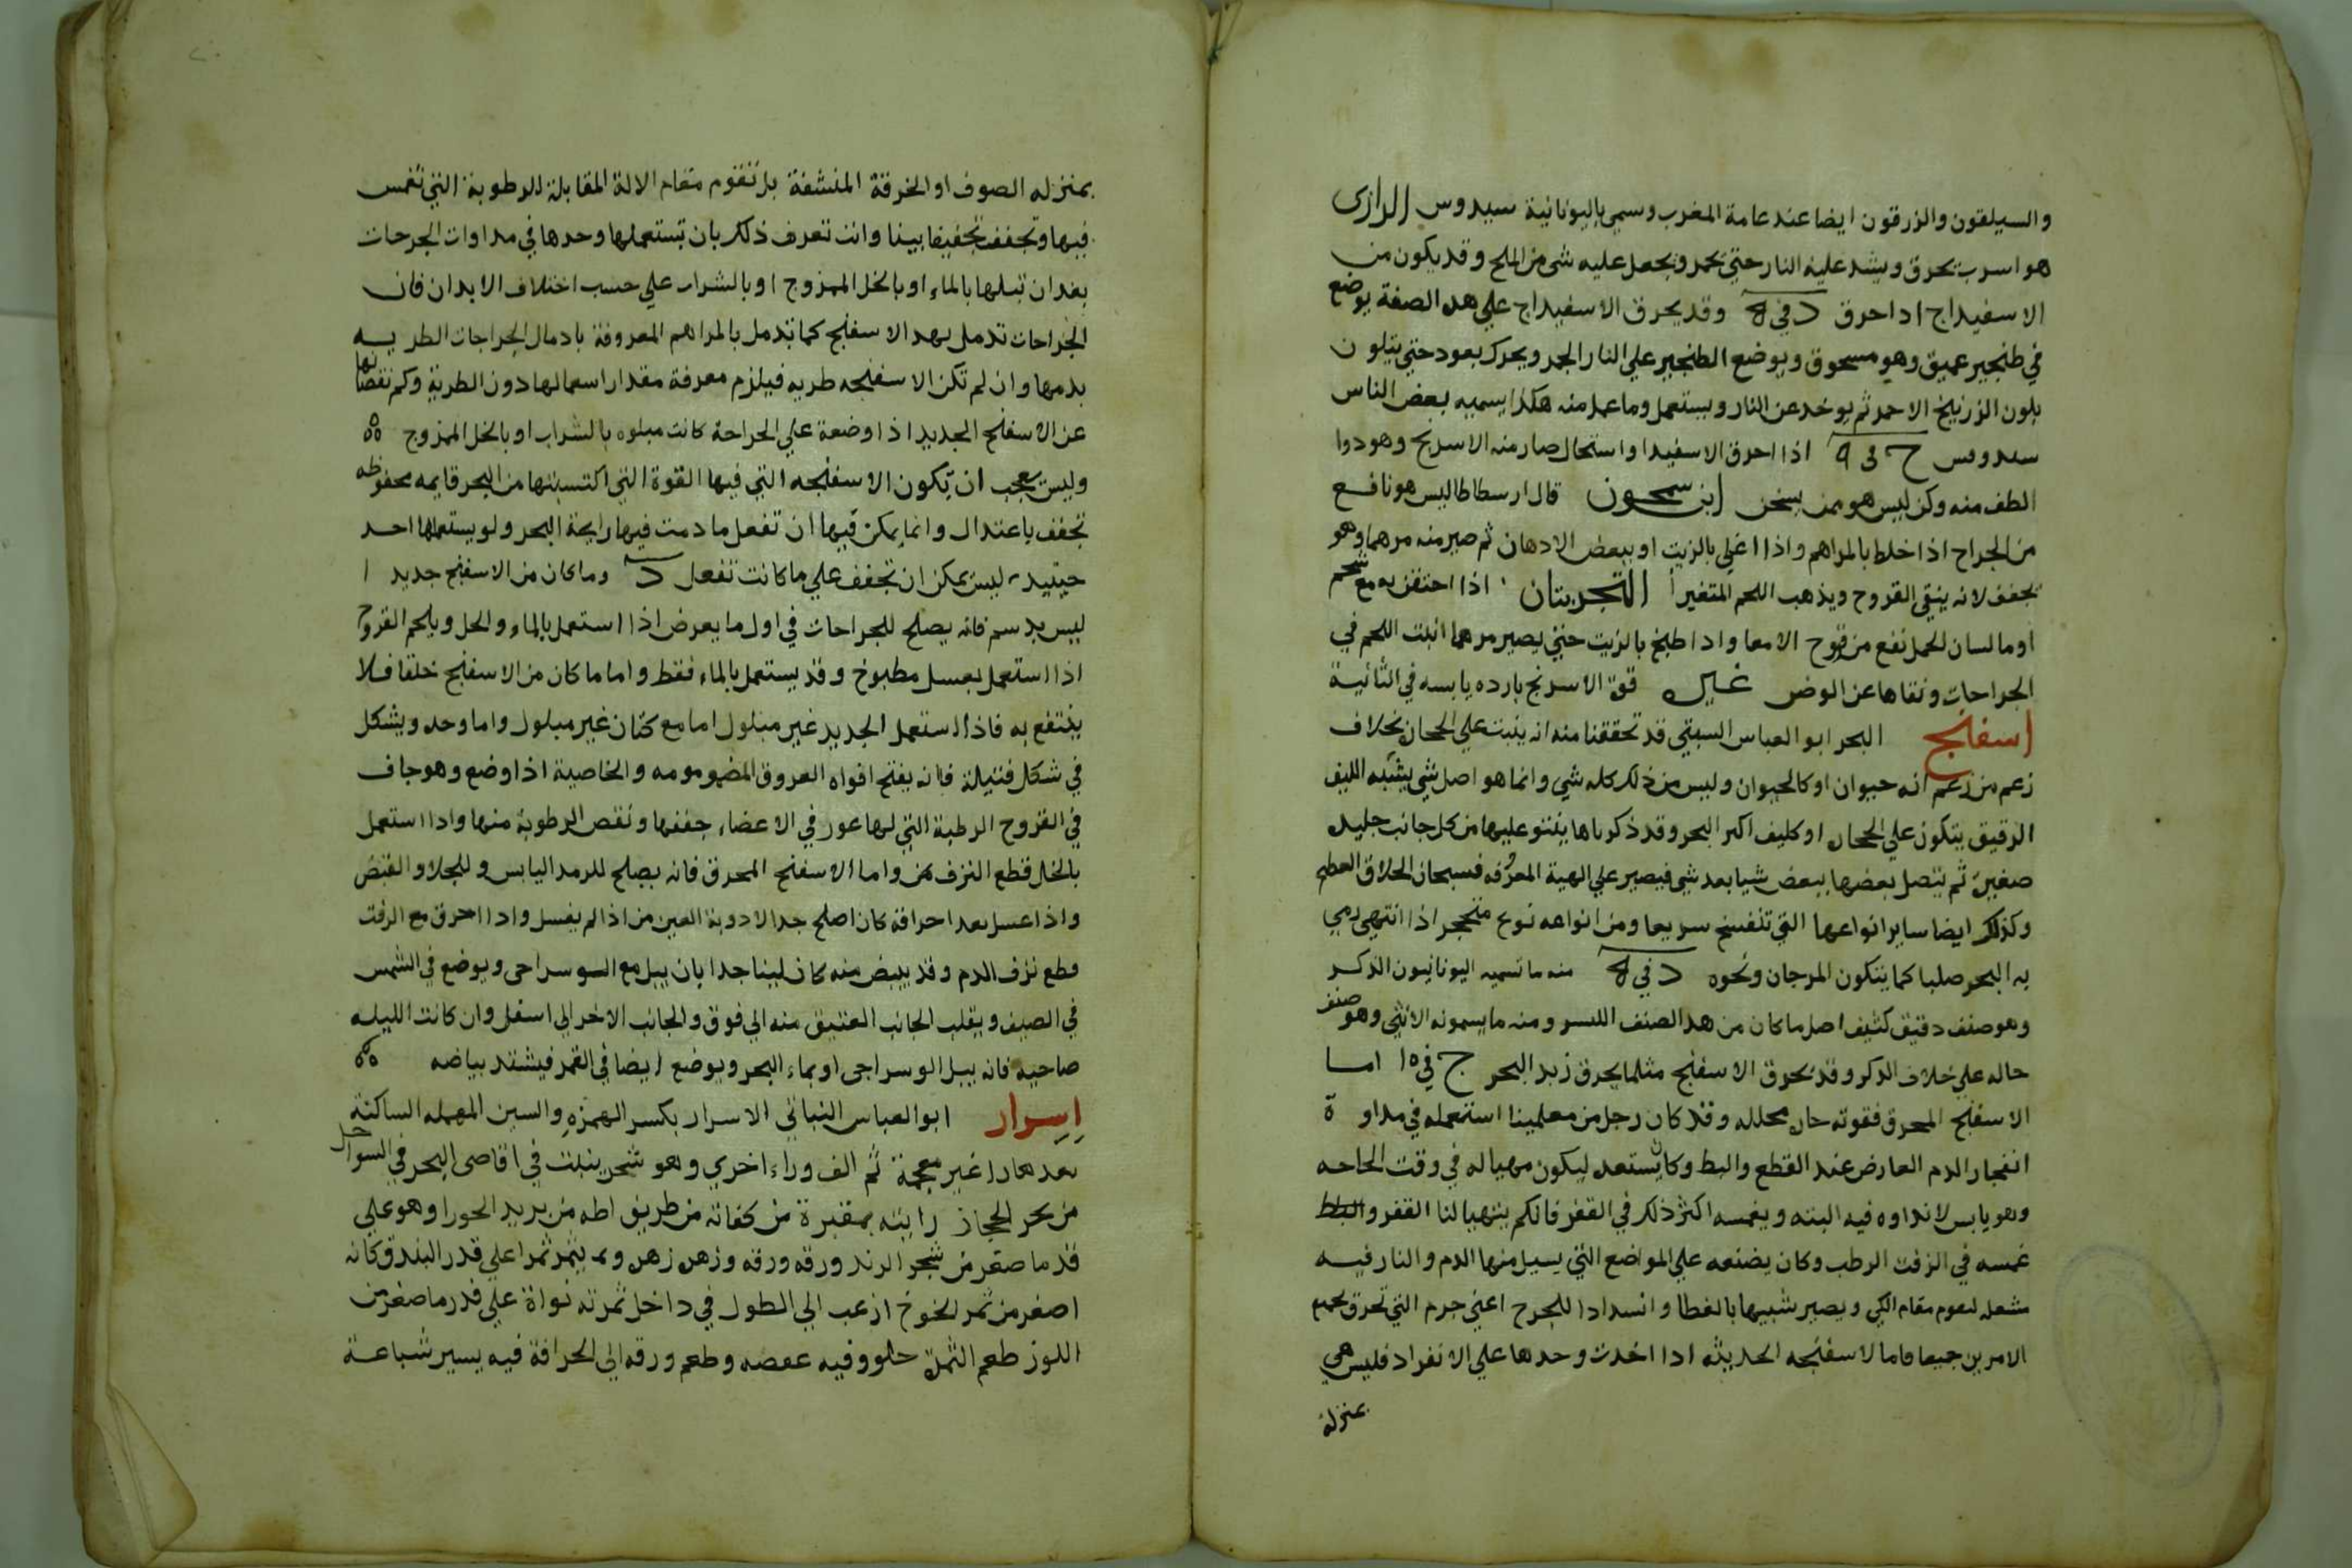 والسيلقون والزرقون ايضا عند عامة المغرب وسمي باليونانية سيدوس الرازى
هو اسرب يحرق ويشد عليه النار حتي يحمر ويجعل عليه شى من الملح وقد يكون من
الاسفيداج اذا احرق د في ه وقد يحرق الاسفيداج علي هده الصفة يوضع
في طنجير عميق وهو مسحوق ويوضع الطنجير علي النار الجمر ويحرك بعود حتي يتلون
بلون الزرنيخ الاحمر ثم يوخد عن النار ويستعمل وما عمل منه هكذا يسميه بعض الناس
سيدوس ج فى ٩ اذا احرق الاسفيدا واستحال صار منه الاسرنج وهو دوا
الطف منه وكن ليس هو ممن يسخن ابن سمحون قال ارسطاطاليس هو نافع
من الجراح اذا خلط بالمراهم واذا اغلي بالزيت او ببعض الادهان ثم صير منه مرهما وهو
يجفف لانه ينقي القروح ويذهب اللحم المتغير التجربتان اذا احتقن به مع شحم
اوما لسان الحمل نفع من قروح الامعا واذا طبخ بالزيت حتي يصير مرهما انبت اللحم في
الجراحات ونقاها عن الوضر غيره قوة الاسرنج بارده يابسه في الثانية
اسفنج البحر ابو العباس السبتي قد تحققنا منه انه ينبت علي الحجان بخلاف
زعم من زعم انه حيوان او كالحيوان وليس من ذلك كله شي وانما هو اصل شي يشبه الليف
الرقيق يتكون علي الحجار او كليف اكر البحر وقد ذكرناها ينتو عليها من كل جانب جليده
صغيرة ثم يتصل بعضها ببعض شيا بعد شي فيصير علي الهية المعروفه فسبحان الخلاق العظيم
وكذلك ايضا ساير انواعها التي تتفسخ سريعا ومن انواعه نوع متحجر اذا انتهي رمي
به البحر صلبا كما يتكون المرجان ونحوه د في ه منه ما تسميه اليونانيون الذكر
وهو صنف دقيق كثيف اصل ما كان من هذا الصنف اللسو ومنه ما يسمونه الانثي وهو صنف
حاله علي خلاف الذكر وقد يحرق الاسفنج مثلما يحرق زبد البحر ج في ١٥ اما
الاسفنج المحرق فقوته حاره محلله وقد كان رجل من معلمينا استعمله في مداوة
انفجار الدم العارض عند القطع والبط وكان يستعد ليكون مهيا له في وقت الحاجه
وهو يابس لا نداوه فيه البته ويغمسه اكثر ذلك في القفر فان لم يتهيا لنا القفر والبلط
غمسه في الزفت الرطب وكان يضعه علي المواضع التي يسيل منها الدم والنار فيه
مشعله لتقوم مقام الكي ويصير شبيها بالغطا وانسدادا للجرح اعني جرم التي تحرق يجمع
الامرين جميعا فاما الاسفنجه الحديثه اذا اخذت وحدها علي الانفراد فليس هي
بمنزلة
بمنزله الصوف او الخرقة المنشفة بل تقوم مقام الالة المقابلة للرطوبة التي تغمس
فيها وتجفف تجفيفا بينا وانت تعرف ذلك بان تستعملها وحدها في مداوات الجرحات
بعد ان تبلها بالماء او بالخل الممزوج او بالشراب علي حسب اختلاف الابدان فان
الجراحات تدمل بهد الاسفنج كما تدمل بالمراهم المعروفة بادمال الجراحات الطريه
بدمها وان لم تكن الاسفنجه طريه فيلزم معرفة مقدار اسعمالها دون الطرية وكم نقصانها
عن الاسفنج الجديد اذا وضعة علي الجراحة كانت مبلوه بالشراب او بالخل الممزوج
وليس يعجب ان يكون الاسفنجه التي فيها القوة التي اكتسبتها من البحر قايمه محفوظه
تجفف باعتدال وانما يمكن فيها ان تفعل ما دمت فيها رايحة البحر ولو يستعملها احد
حينيد ليس يمكن ان تجفف علي ما كانت تفعل د وما كان من الاسفنج جديد ا
ليس بدسم فانه يصلح للجراحات في اول ما يعرض اذا استعمل بالماء والخل ويلحم القروح
اذا استعمل بعسل مطبوخ وقد يستعمل بالماء فقط واما ما كان من الاسفنج خلقا فلا
ينتفع به فاذا استعمل الجديد غير مبلول اما مع كتان غير مبلول واما وحده ويشكل
في شكل فتيلة فانه يفتح افواه العروق المضمومومه والخاصية اذا وضع وهو جاف
في القروح الرطبة التي لها غور في الاعضاء جففها ونقص الرطوبة منها واذا استعمل
بالخل قطع النزف من واما الاسفنج المحرق فانه يصلح للرمد اليابس وللجلاو القبض
واذا غسل بعد احراقة كان اصلح جدا لادوية العين من اذا لم يغسل واذا احرق مع الزفت
قطع نزف الدم وقد يبيض منه كان لينا جدا بان يبل مع السوسراحى ويوضع في الشمس
في الصيف ويقلب الجانب العتيق منه الي فوق والجانب الاخر الي اسفل وان كانت الليله
صاحيه فانه يبل الوسراجى او بماء البحر ويوضع ايضا في القمر فيشتد بياضه
اسرار ابو العباس النباتي الاسرار بكسر الهمزه والسين المهمله الساكنة
بعدها را غير معجمة ثم الف وراء اخري وهو شجر ينبت في اقاصى البحر في السواحل
من بحر الحجاز رايته بمقبرة من كفاته من طريق اطه من بريد الحورا وهو علي
قد ما صغر من شجر الرند ورقه ورقه وزهره زهره و يثمر ثمرا علي قدر البندق كانه
اصغر من ثمر الخوخ ازغب الي الطول في داخل ثمرته نواة علي قدر ما صغر من
اللوز طعم الثمرة حلو وفيه عفصه وطعم ورقه الى الحرافة فيه يسير شباعة